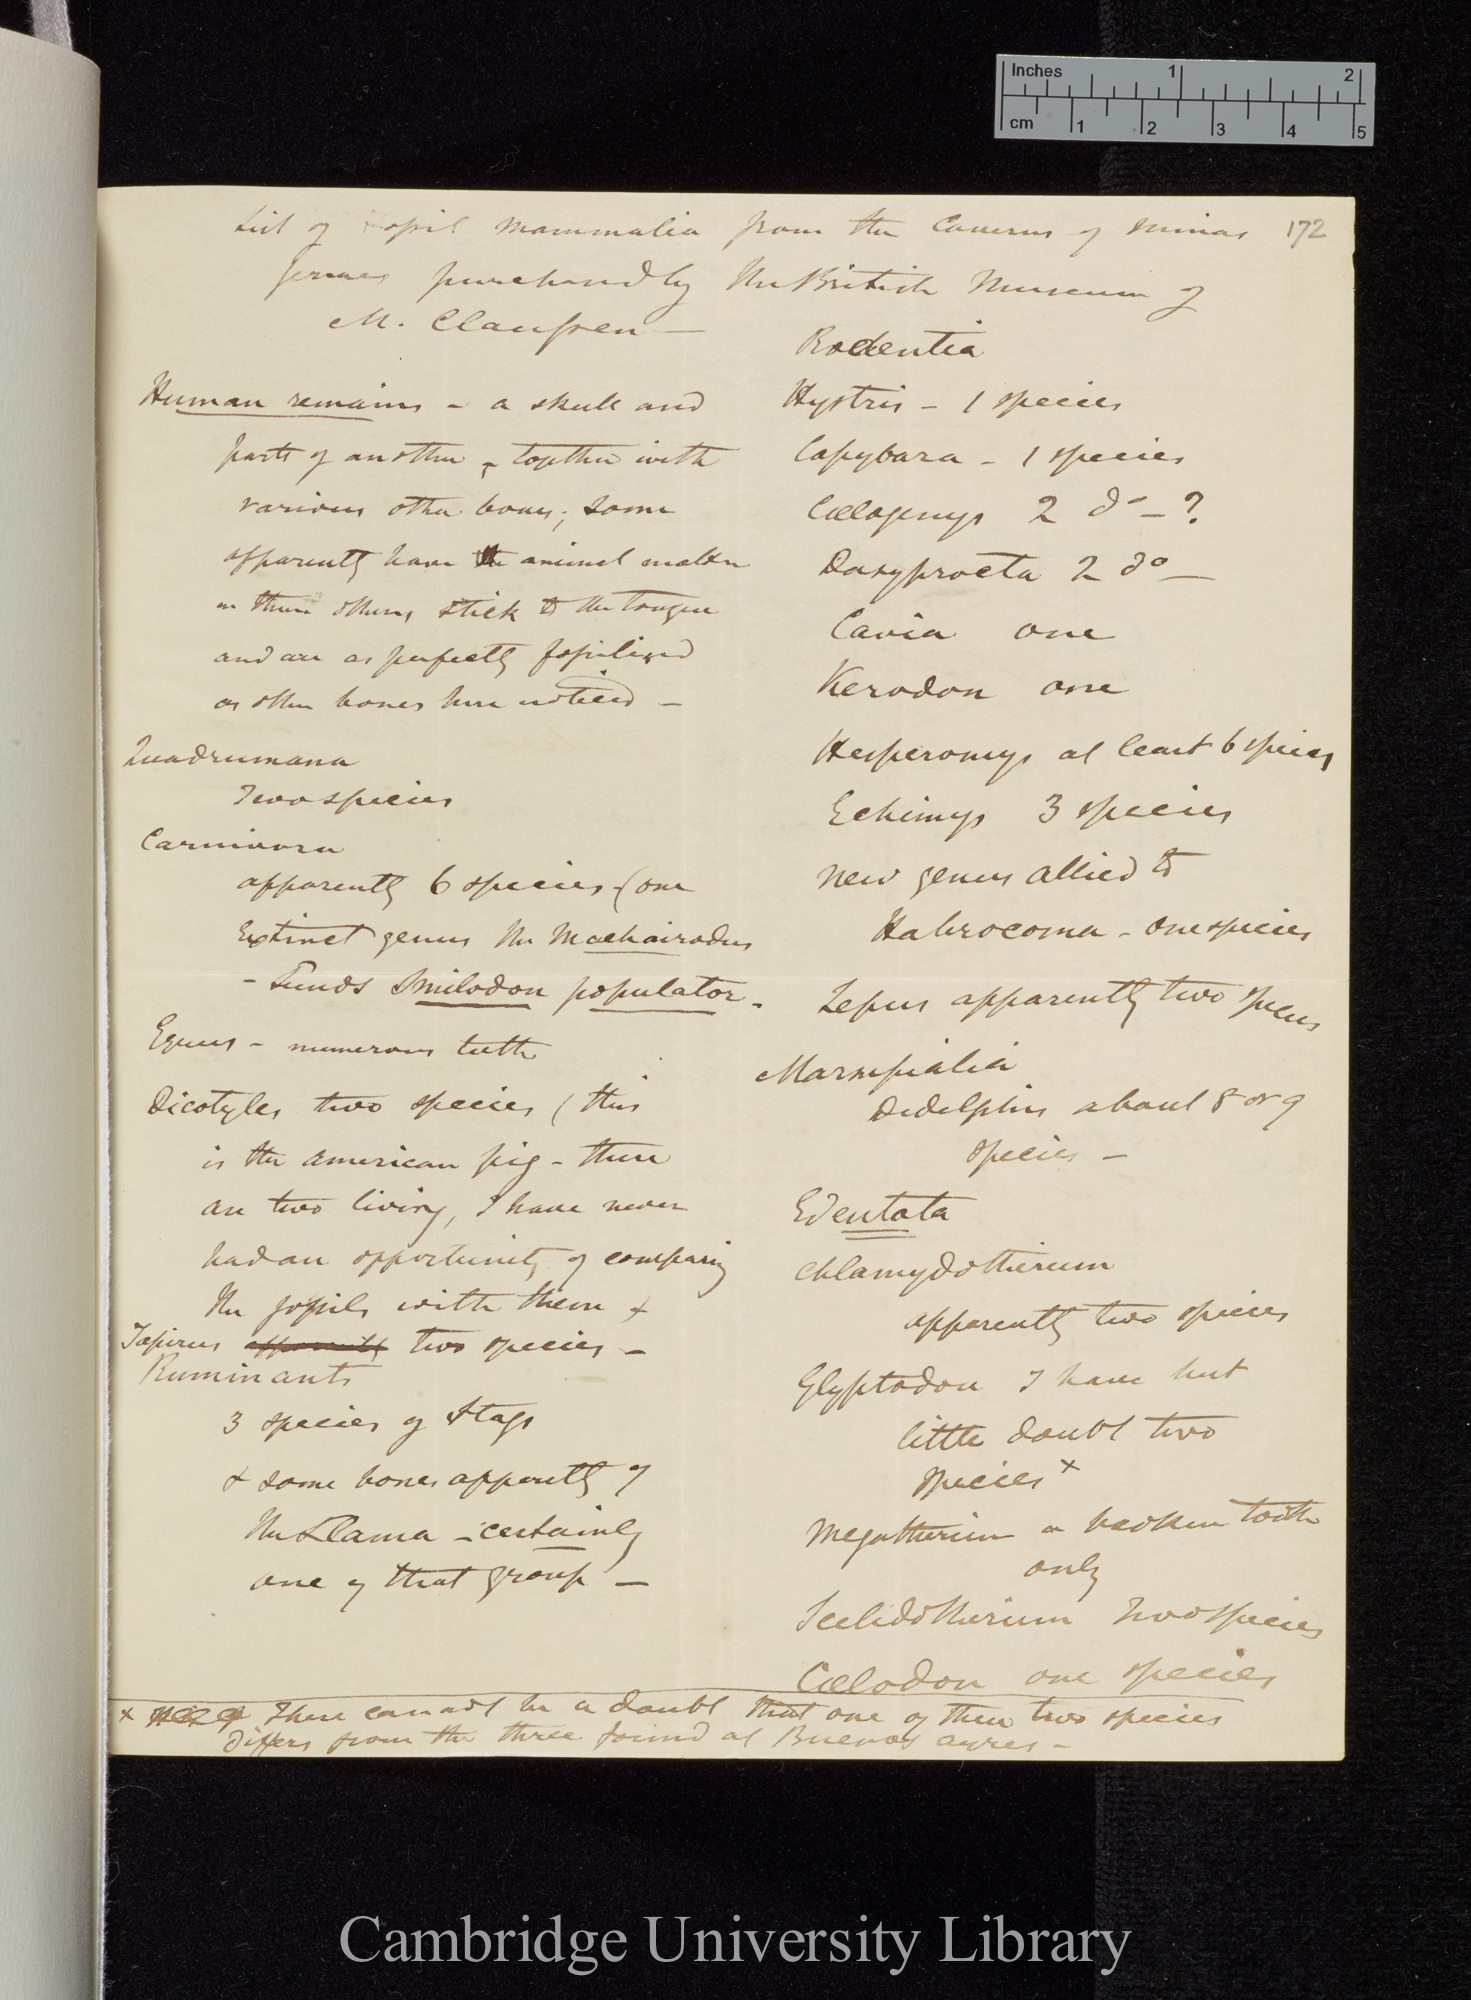 Inches 1 2
cm 1 2 3 4 5
172
List of Fossil Mammalia from the Caverns of Minas
Geraes purchased by the British Museum of
M. Claussen —
Human remains – a skull and
parts of another, together with
various other bones; some
apparently have the animal matter
in them others stick to the tongue
and are as perfectly fossilized
as other bones here noticed —
Quadrumana
Two species
Carnivora
apparently 6 species – (one
Extinct genus the Machairodus
– Lunds Smilodon populator –
Equus – numerous teeth
Dicotyles two species (this
is the American pig – there
are two living, I have never
had an opportunity of comparing
the fossils with them +
Tapirus apparently two species –
Ruminants
3 species of Stags
& some bones apparently of
the Llama – certainly
one of that group —
Rodentia
Hystrix – 1 species
Capybara – 1 species
Cœlogenys 2 do – ?
Dasyprocta 2 do —
Cavia one
Kerodon one
Hesperomys at least 6 species
Echimys 3 species
new genus allied to
Habrocoma – one species
Lepus apparently two species
Marsupialia
Didelphis about 8 or 9
species –
Edentata
Chlamydotherium
apparently two species
Glyptodon I have but
little doubt two
species x
Megatherium a broken tooth
only
Scelidotherium Two species
Cœlodon one species
x There cannot be a doubt that one of these two species
differs from the three found at Buenos Ayres –
Cambridge University Library